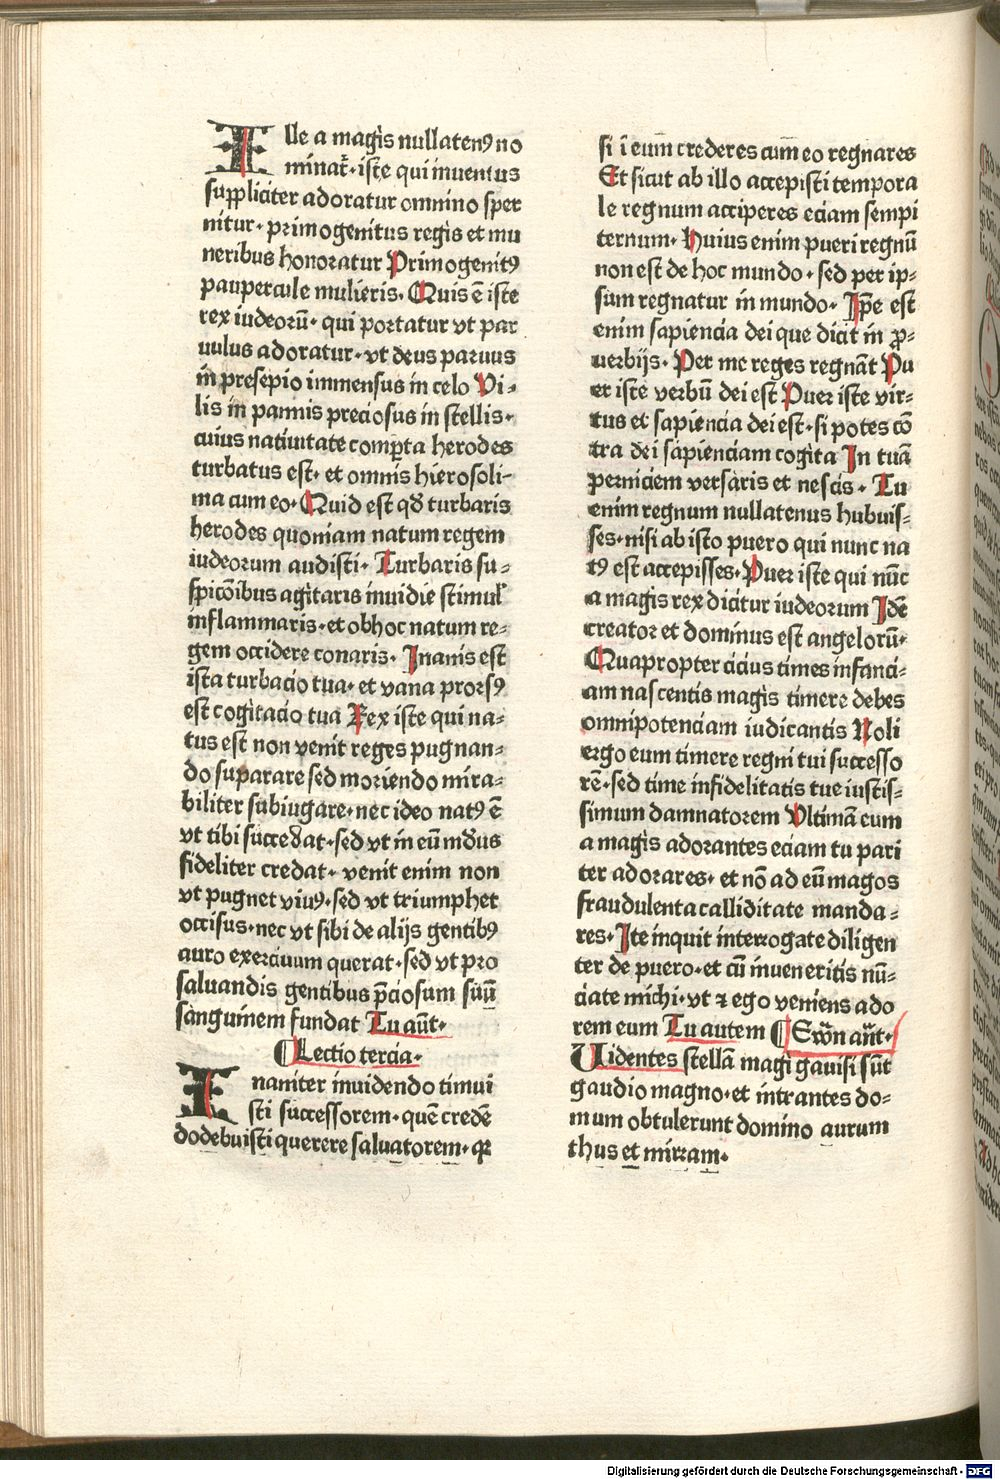 Ille a magis nullatenꝰ no
minat᷑· iste qui inuentus
suppliciter adoratur omnino sper
nitur· primogenitus regis et mu
neribus honoratur Primogenitꝰ
paupercule mulieris. Quis ē iste
rex iudeorū· qui portatur vt par
uulus adoratur· vt deus paruus
in presepio immensus in celo Vi⸗
lis in pannis preciosus in stellis·
cuius natiuitate comꝑta herodes
turbatus est· et omnis hierosoli⸗
ma cum eo· Quid est qđ turbaris
herodes quoniam natum regem
iudeorum audisti· Turbaris su⸗
spicōibus agitaris inuidie stimul᷑
inflammaris· et obhoc natum re⸗
gem occidere conaris· Inanis est
ista turbacio tua· et vana prorsꝰ
est cogitacio tua Rex iste qui na⸗
tus est non venit reges pugnan⸗
do suparare sed moriendo mira⸗
biliter subiugare· nec ideo natꝰ ē
vt tibi succedat· sed vt in eū mūdus
fideliter credat· venit enim non
vt pugnet viuꝰ· sed vt triumphet
occisus· nec vt sibi de alijs gentibꝰ
auro exercituum querat· sed vt pro
saluandis gentibus p̄ciosum suū
sanguinem fundat Tu aūt·
¶ Lectio tercia·
Inaniter inuidendo timui
sti successorem· quē credē
dodebuisti querere saluatorem· qꝛ
si ī eum crederes cum eo regnares
Et sicut ab illo accepisti tempora
le regnum acciperes eciam sempi
ternum· Huius enim pueri regnū
non est de hoc mundo· sed per ip⸗
sum regnatur in mundo· Ip̄e est
enim sapiencia dei que dicit in ꝓ⸗
uerbijs· Per me reges regnāt Pu
er iste verbū dei est Puer iste vir⸗
tus et sapiencia dei est· si potes cō
tra dei sapienciam cogita In tuā
perniciem versaris et nescis· Tu
enim regnum nullatenus hubuis⸗
ses· nisi ab isto puero qui nunc na
tꝰ est accepisses· Puer iste qui nūc
a magis rex dicitur iudeorum Idē
creator et dominus est angelorū·
Quapropter cicius times infanci⸗
am nascentis magis timere debes
omnipotenciam iudicantis Noli
ergo eum timere regni tui successo
rē· sed time infidelitatis tue iustis⸗
simum damnatorem Vltimā eum
a magis adorantes eciam tu pari
ter adorares· et nō ad eū magos
fraudulenta calliditate manda⸗
res· Ite inquit interrogate diligen
ter de puero· et cū inueneritis nū⸗
ciate michi· vt ⁊ ego veniens ado
rem eum Tu autem ¶ Sexūn an̄t·
Uidentes stellā magi gauisi sūt
gaudio magno· et intrantes do⸗
mum obtulerunt domino aurum
thus et mirram·
Digitalisierung gefördert durch die Deutsche Forschungsgemeinschaft - DFG